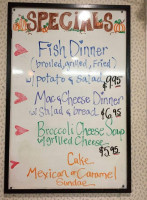 SPECIALS
Fish Dinner
(broiled, grilled, fried)
w/potato & salad $9.95
Mac & Cheese Dinner
w/salad & bread $6.95
Broccoli Cheese Soup
w/grilled cheese
$5.95
Cake
Mexican or Caramel
Sundae